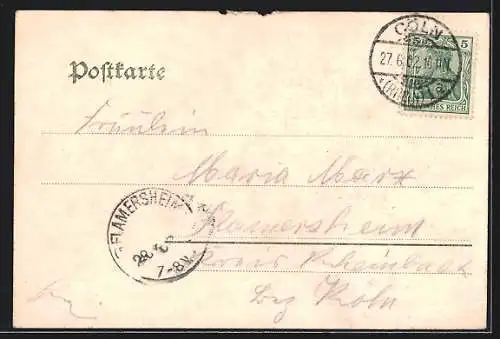 CÖLN
27.6.02.10
5
CHES REICH
Postkarte
Fräulein
Maria Marx
Flamersheim
Kreis Rheinbach
Bez Köln
FLAMERSHEIM
28
7-8V